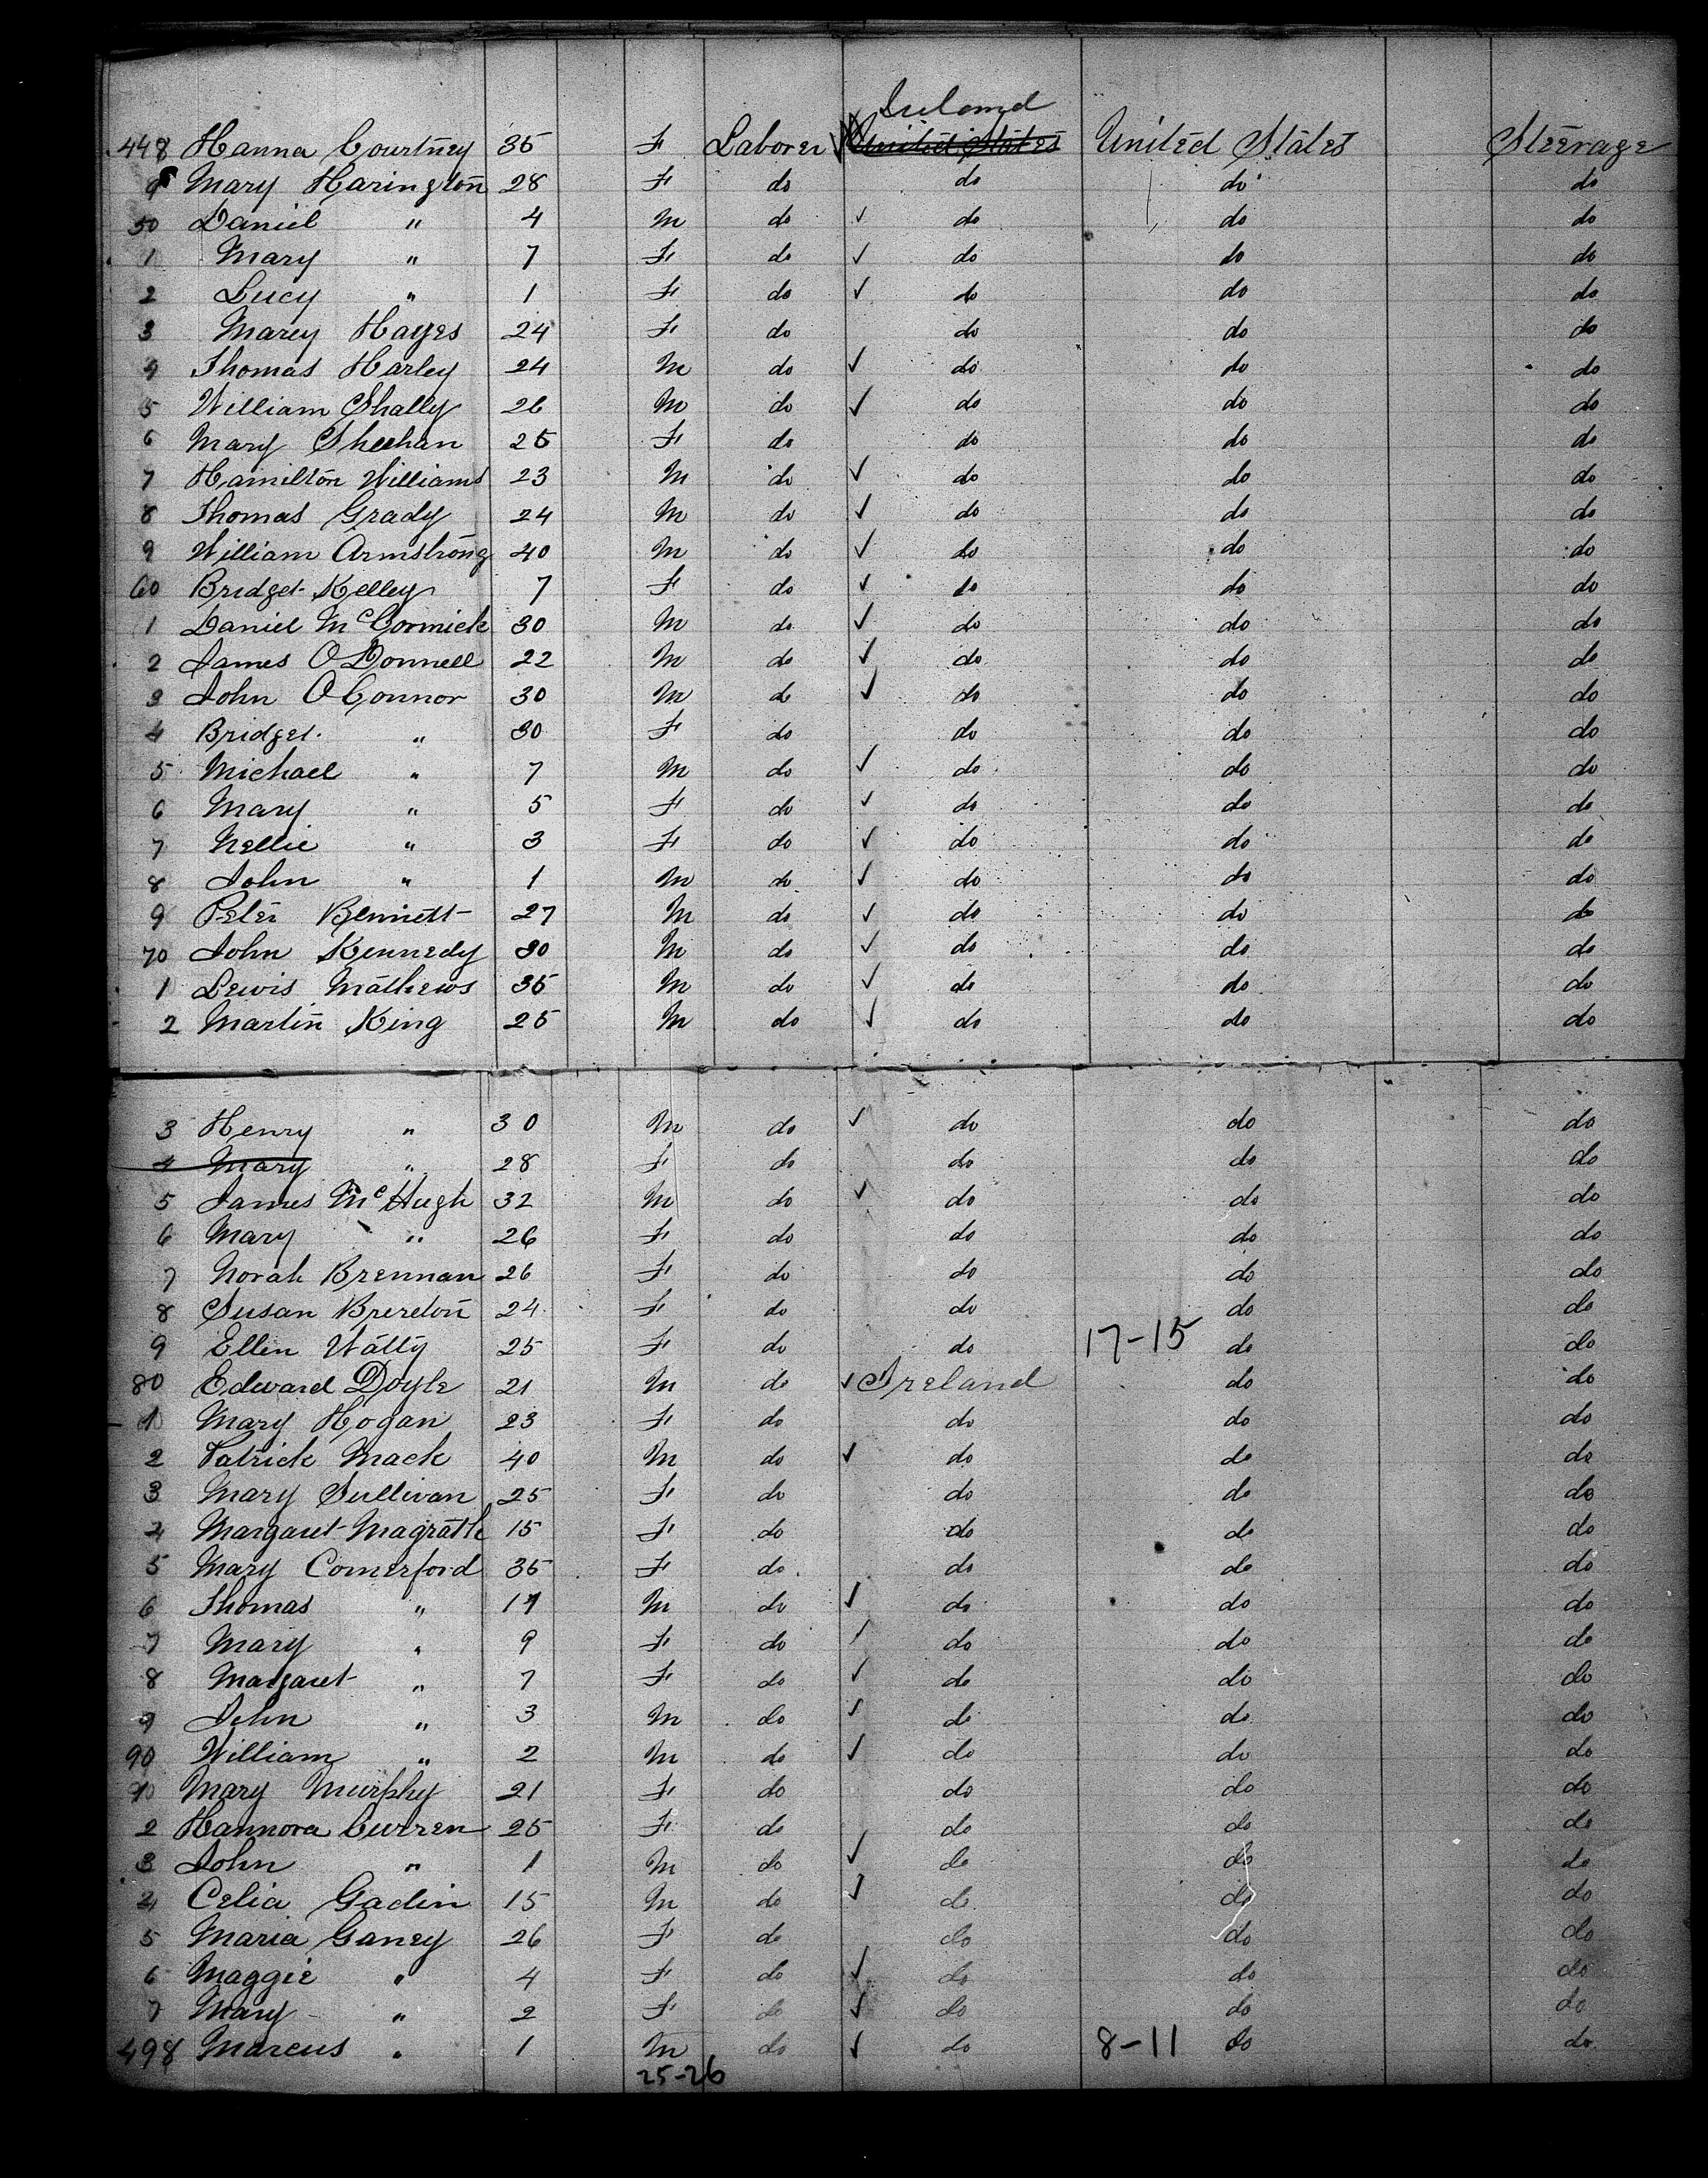 Ireland
448 Hanna Courtney 35 F Laborer ✓ United States United States Steerage
9 Mary Harington 28 F do do do do
50 Daniel " 4 M do ✓ do do do
1 Mary " 7 F do ✓ do do do
2 Lucy " 1 F do ✓ do do do
3 Marey Hayes 24 F do do do do
4 Thomas Harley 24 M do ✓ do do do
5 William Shally 26 M do ✓ do do do
6 Mary Sheehan 25 F do do do do
7 Hamilton Williams 23 M do ✓ do do do
8 Thomas Grady 24 M do ✓ do do do
9 William Armstrong 40 M do ✓ do do do
60 Bridget Kelley 7 F do ✓ do do do
1 Daniel McCormick 30 M do ✓ do do do
2 James O Donnell 22 M do ✓ do do do
3 John O Connor 30 M do ✓ do do do
4 Bridget " 30 F do do do do
5 Michael " 7 M do ✓ do do do
6 Mary " 5 F do ✓ do do do
7 Nellie " 3 F do ✓ do do do
8 John " 1 M do ✓ do do do
9 Peter Bennett 27 M do ✓ do do do
70 John Kennedy 30 M do ✓ do do do
1 Lewis Mathews 35 M do ✓ do do do
2 Martin King 25 M do ✓ do do do
3 Henry " 30 M do ✓ do do do
4 Mary " 28 F do do do do
5 James McHugh 32 M do ✓ do do do
6 Mary " 26 F do do do do
7 Norah Brennan 26 F do do do do
8 Susan Brereton 24 F do do do do
9 Ellen Watty 25 F do do 17-15 do do
80 Edward Doyle 21 M do ✓ Ireland do do
1 Mary Hogan 23 F do do do do
2 Patrick Mack 40 M do ✓ do do do
3 Mary Sullivan 25 F do do do do
4 Margaret Magrath 15 F do do do do
5 Mary Comerford 35 F do do do do
6 Thomas " M do ✓ do do do
7 Mary " 9 F do ✓ do do do
8 Margaret " 7 F do ✓ do do do
9 John " 3 M do ✓ do do do
90 William " 2 M do ✓ do do do
1 Mary Murphy 21 F do do do do
2 Hannora Curren 25 F do do do do
3 John " 1 M do ✓ do do do
4 Celia Gadin 15 M do ✓ do do do
5 Maria Ganey 26 F do do do do
6 Maggie " 4 F do ✓ do do do
7 Mary " 2 F do ✓ do do do
498 Marcus " 1 M do ✓ do 8-11 do do
25-26